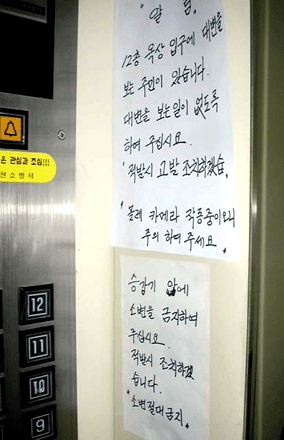 알 림
12층 옥상 입구에 대변을
보는 주민이 있습니다.
대변을 보는일이 없도록
하여 주십시요.
적발시 고발 조치하겠슴.
몰래 카메라 작동중이오니
주의 하여 주세요.
승강기 앞에
소변을 금지하여
주십시요.
적발시 조치하겠
습니다.
소변절대금지.
은 관심과 조심!!!
천소방서
12
11
10
9